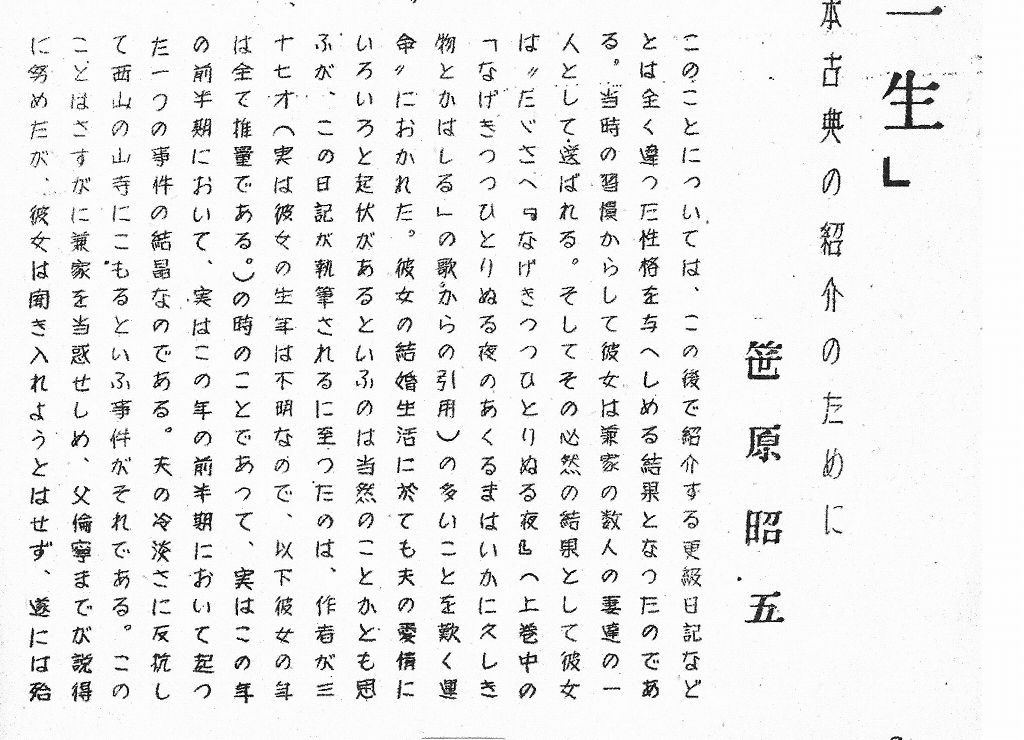 一生」
本古典の紹介のために
笹原昭五
このことについては、この後で紹介する更級日記など
とは全く違つた性格を与へしめる結果となつたのであ
る。当時の習慣からして彼女は兼家の数人の妻達の一
人として選ばれる。そしてその必然の結果として彼女
は〃たゞさへ『なげきつつひとりぬる夜』へ上巻中の
「なげきつつひとりぬる夜のあくるまはいかに久しき
物とかはしる」の歌からの引用)の多いことを歎く運
命〃におかれた。彼女の結婚生活に於ても夫の愛情に
いろいろと起伏があるといふのは当然のことかとも思
ふが、この日記が執筆されるに至つたのは、作者が三
十七才(実は彼女の生年は不明なので、以下彼女の年
は全て推量である。)の時のことであつて、実はこの年
の前半期において、実はこの年の前半期において起つ
た一つの事件の結晶なのである。夫の冷淡さに反抗し
て西山の山寺にこもるといふ事件がそれである。この
ことはさすがに兼家を当惑せしめ、父倫寧までが説得
に努めたが、彼女は聞き入れようとはせず、遂には殆